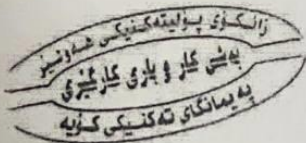 زانكۆی پۆلیتەكنیكی هەولێر
بەشی كار و باری كارگێڕی
پەیمانگای تەكنیكی كۆیە